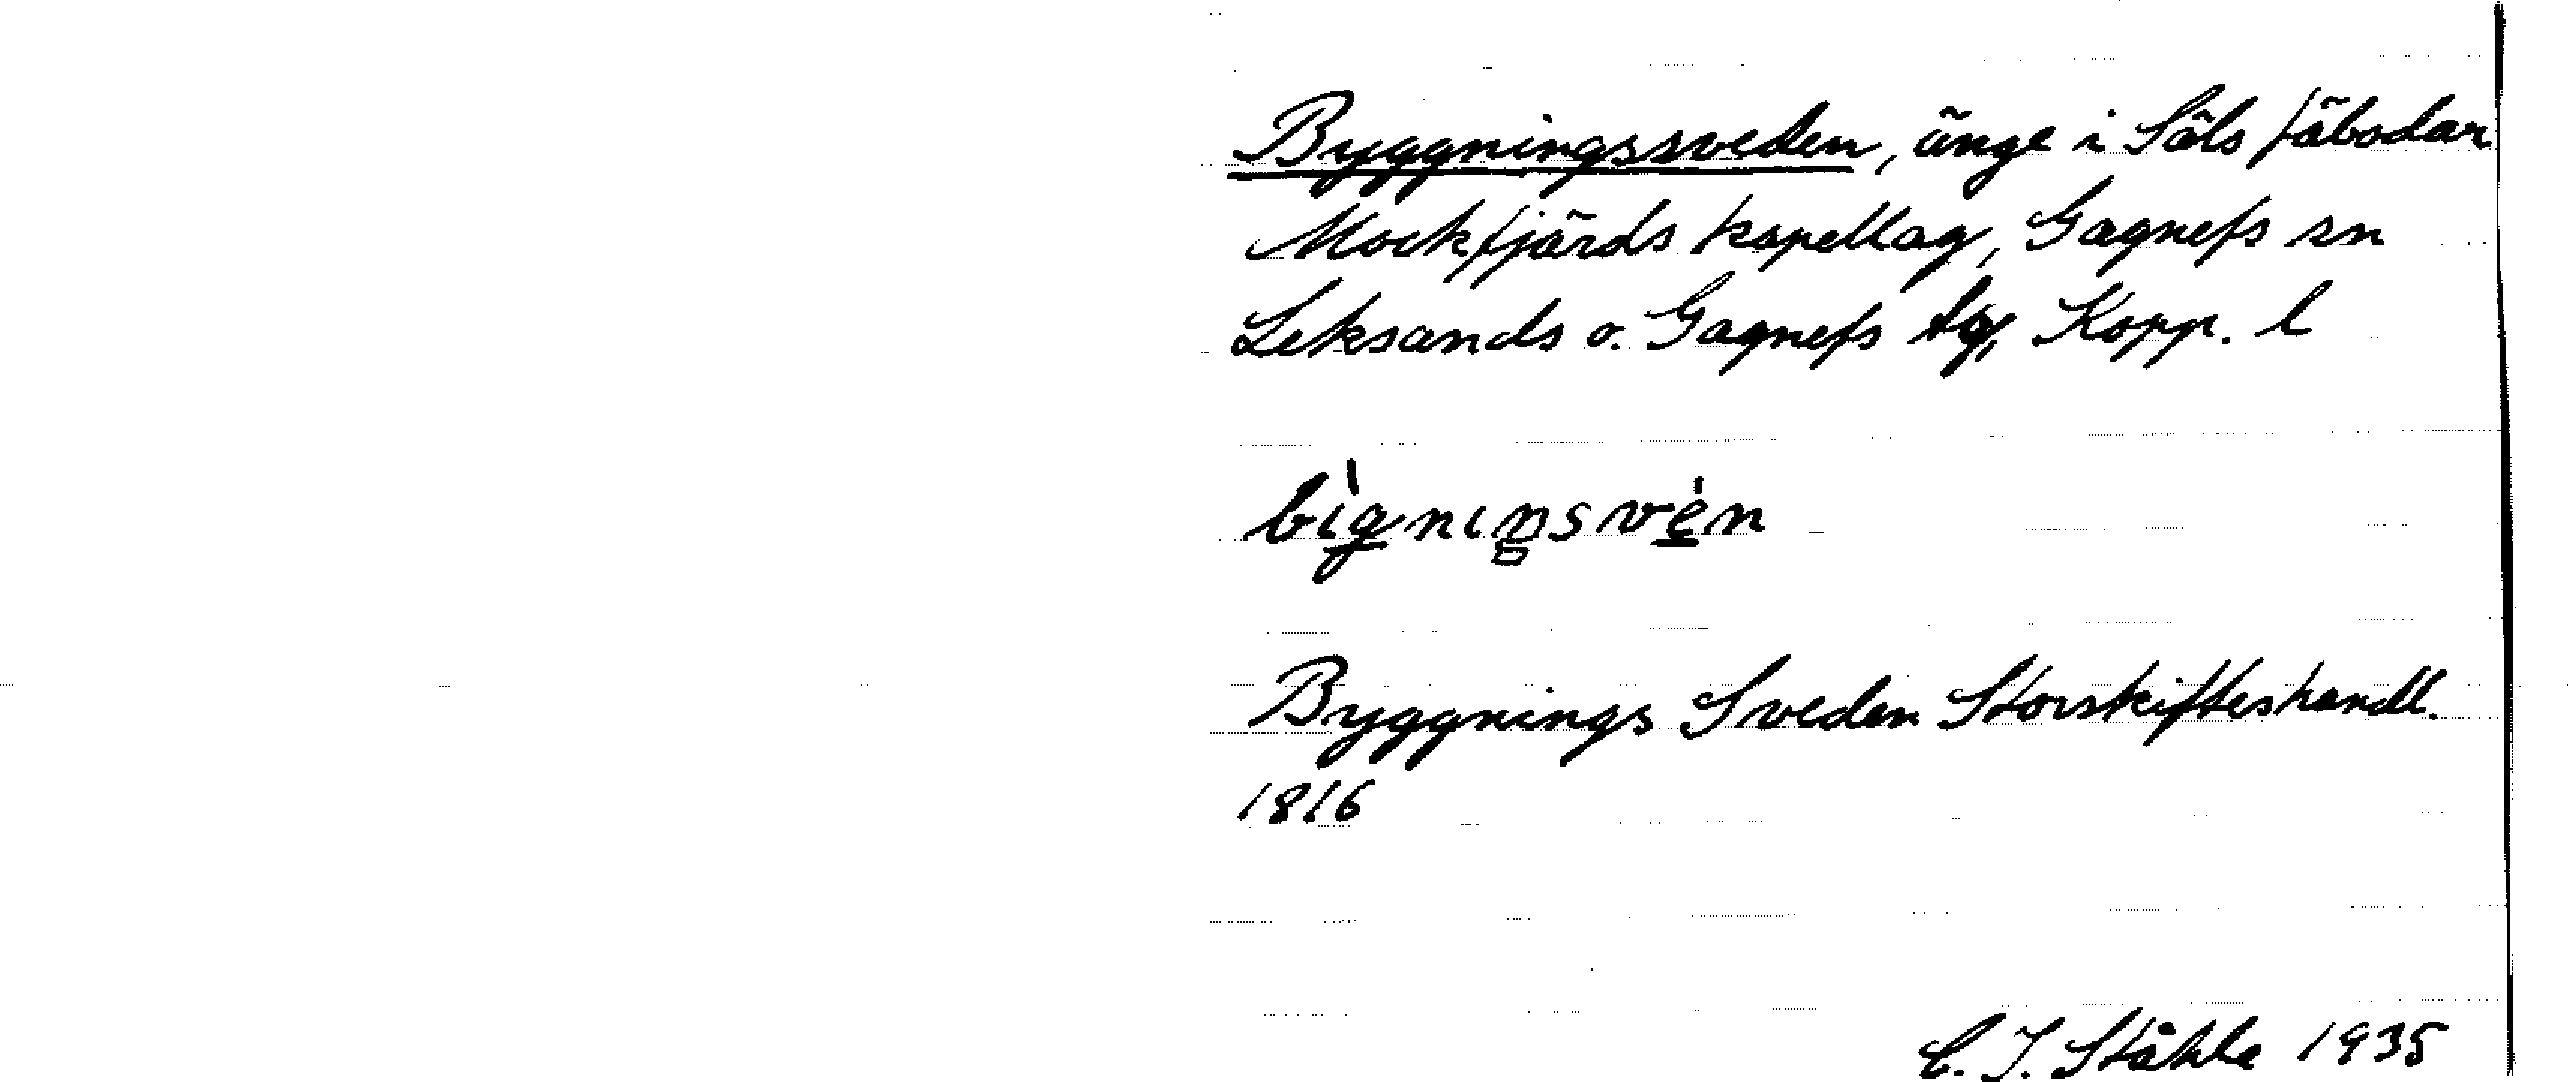 Byggningssveden, änge i Säls fäbodar
Mockfjärds kapellag, Gagnefs sn
Leksands o. Gagnefs tg, Kopp. l
bìgnıŋsvèn
Byggnings Sveden Storskifteshandl.
1816
C. I. Ståhle 1935